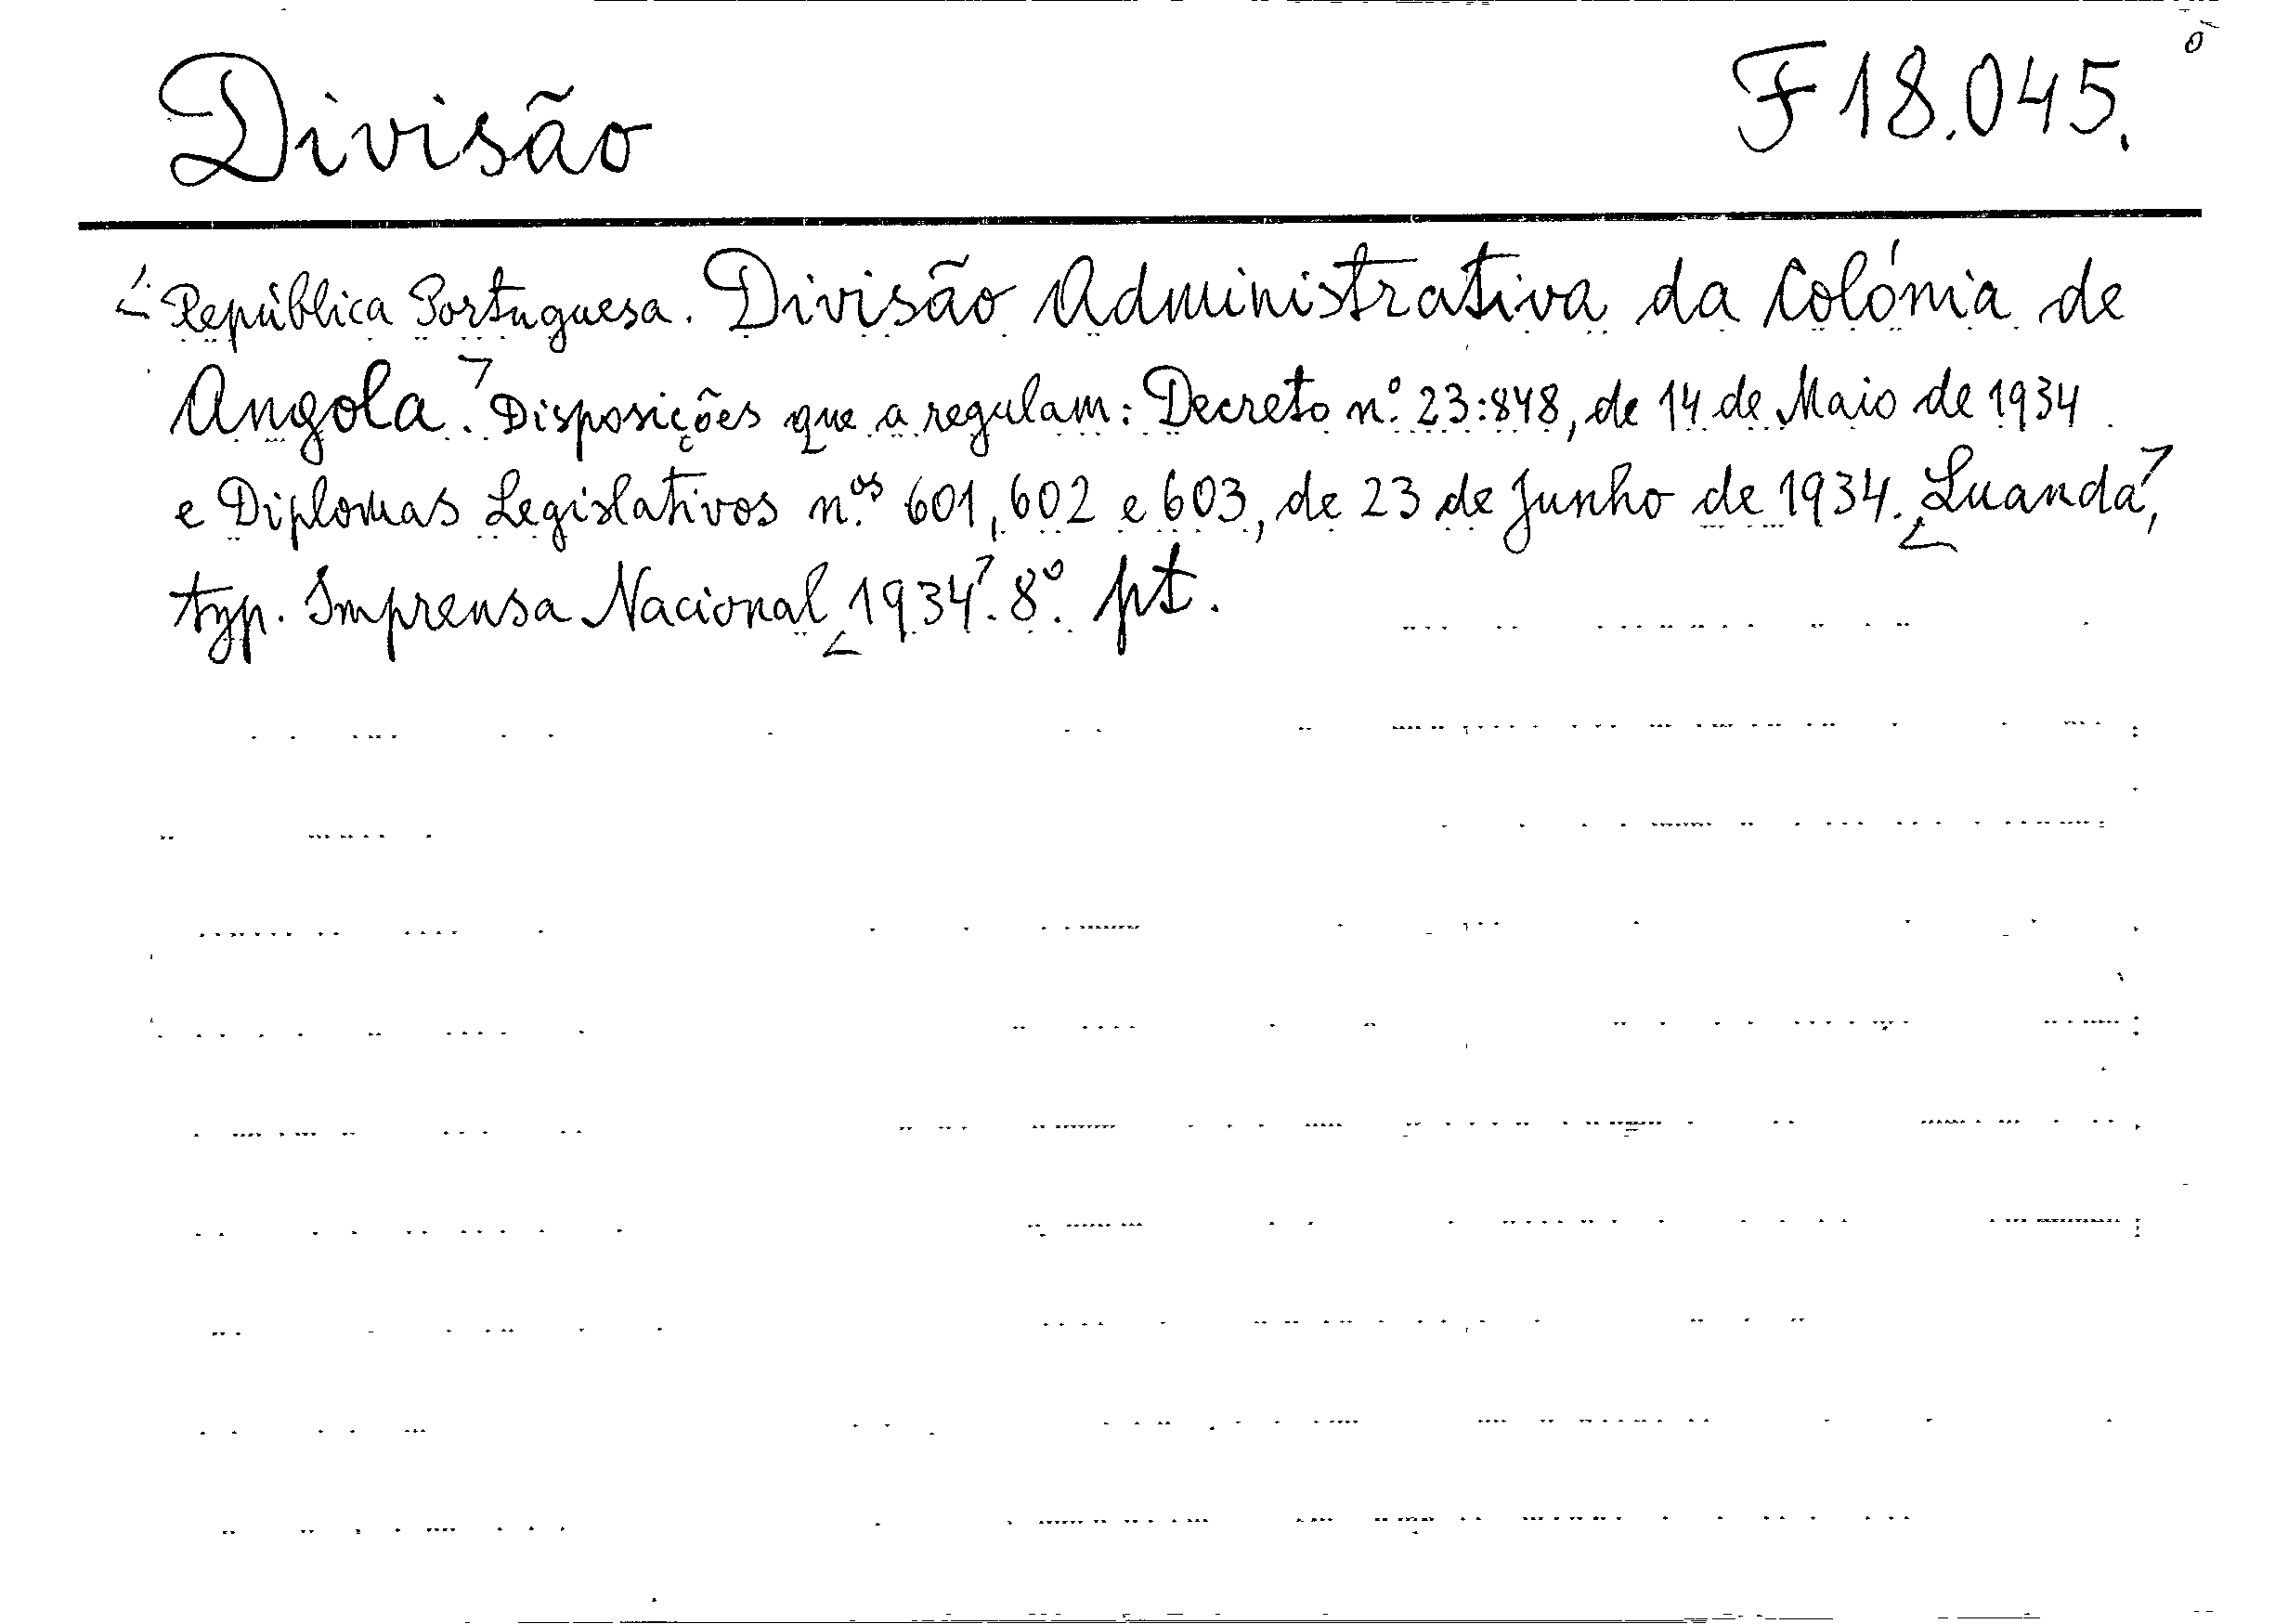 Divisão F 18.045.
República Portuguesa. Divisão Administrativa da Colónia de
Angola. Disposições que a regulam: Decreto n.º 23:848, de 14 de Maio de 1934
e Diplomas Legislativos n.ºs 601, 602 e 603, de 23 de Junho de 1934. Luanda,
typ. Imprensa Nacional 1934. 8.º pt.